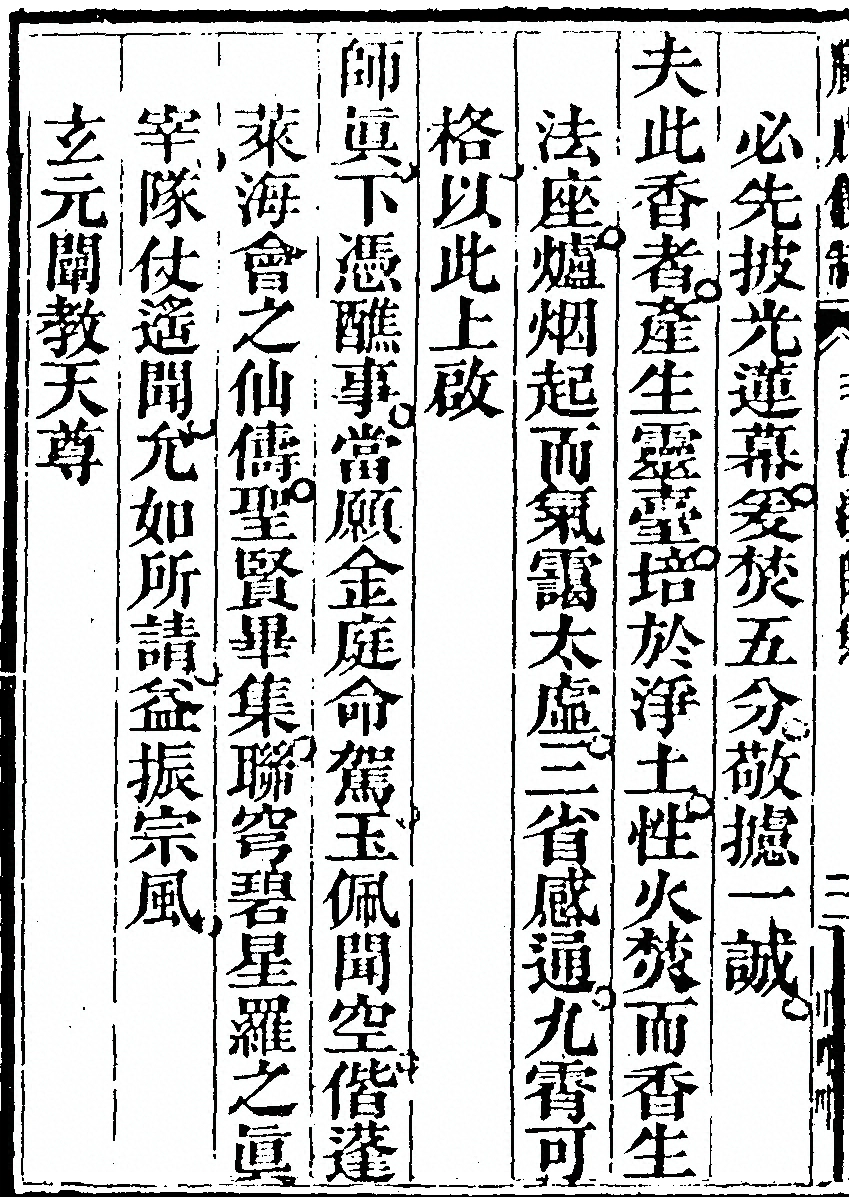 必先披光蓮幕爰焚五分敬攄一誠
夫此香者產生靈臺培於淨土性火焚而香生
法座爐烟起而氣靄太虛三省感通九霄可
格以此上啟
師眞下憑醮事當願金庭命駕玉佩聞空偕蓬
萊海會之仙儔聖賢畢集聯穹碧星羅之眞
宰隊仗遥聞允如所請益振宗風
玄元闡教天尊